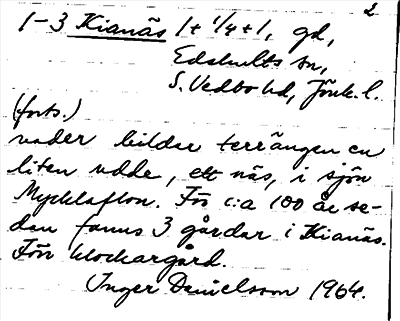 2
1-3 Kianäs 1+1/4+1, gd,
Edshults sn,
S. Vedbo hd, Jönk. l.
(forts.)
nader bildar terrängen en
liten udde, ett näs, i sjön
Mycklaflon. För c:a 100 år se-
dan fanns 3 gårdar i Kianäs.
Förr klockargård.
Inger Danielsson 1964.